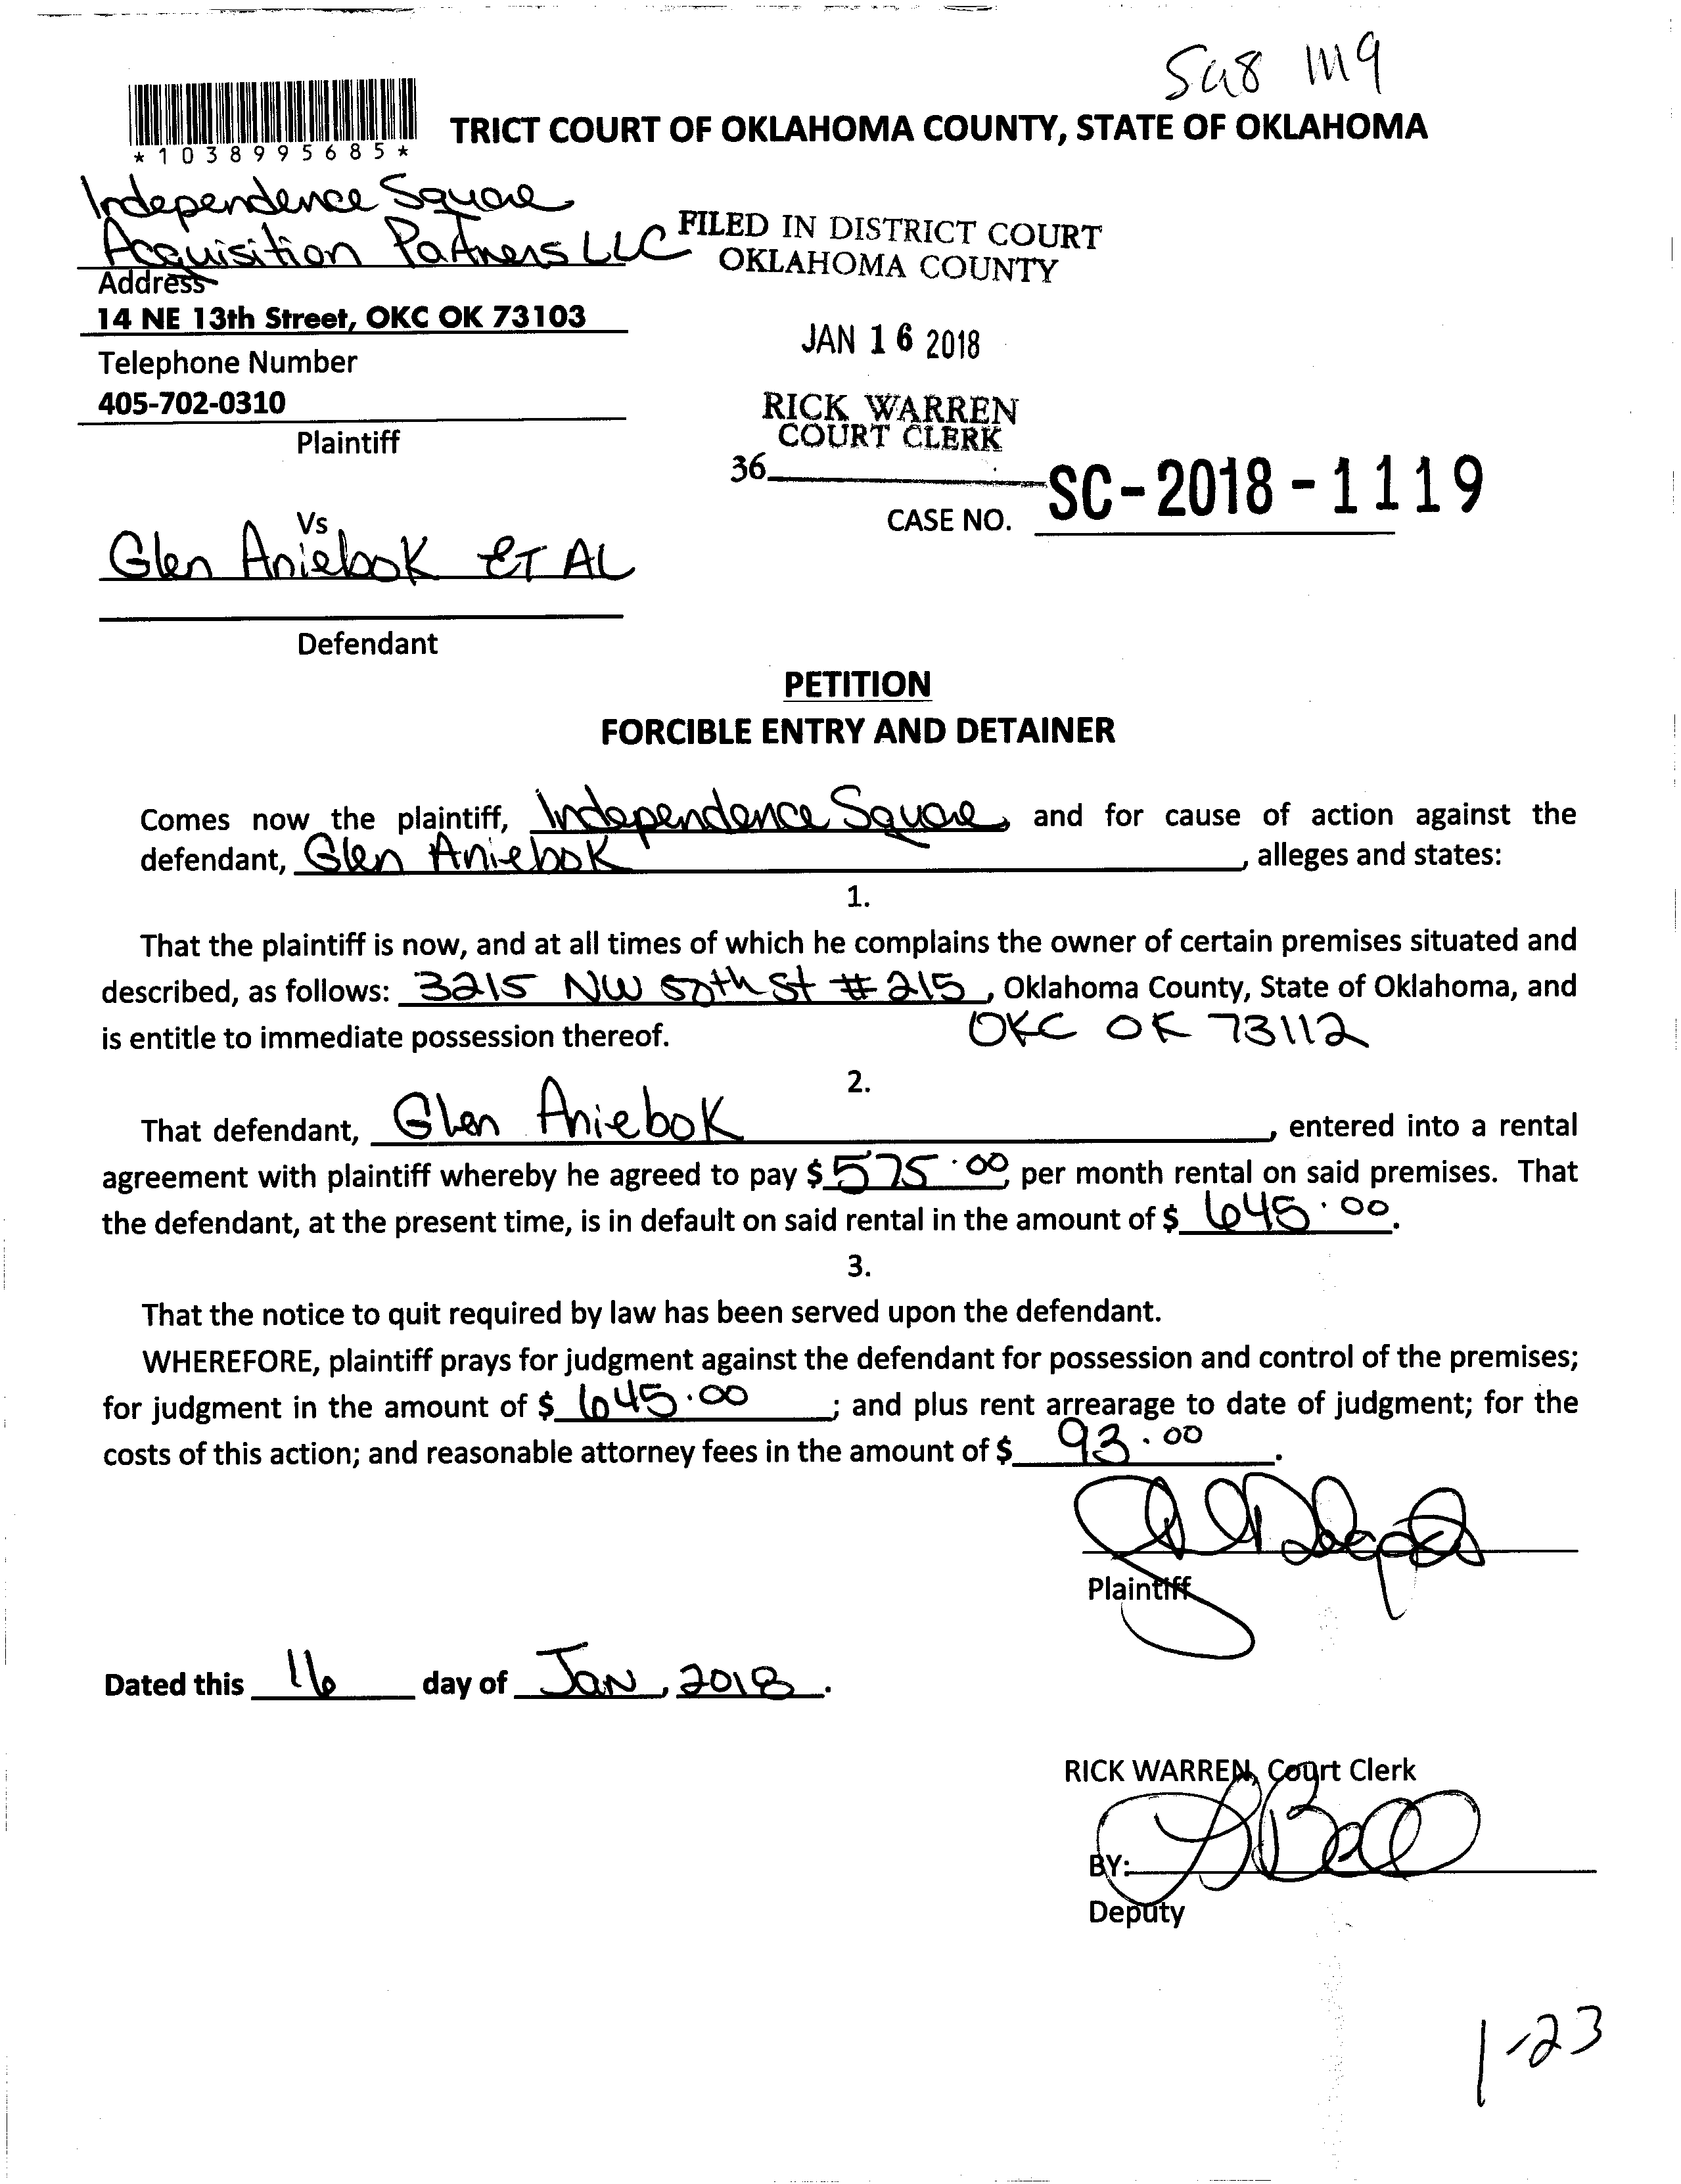 Sa8 M9
TRICT COURT OF OKLAHOMA COUNTY, STATE OF OKLAHOMA
*1038995685*
Independence Square
Acquisition Partners LLC
Address
14 NE 13th Street, OKC OK 73103
Telephone Number
405-702-0310
Plaintiff
FILED IN DISTRICT COURT
OKLAHOMA COUNTY
JAN 16 2018
RICK WARREN
COURT CLERK
36
CASE NO. SC-2018-1119
Vs
Glen Aniebok ET AL
Defendant
PETITION
FORCIBLE ENTRY AND DETAINER
Comes now the plaintiff, Independence Square, and for cause of action against the
defendant, Glen Aniebok, alleges and states:
1.
That the plaintiff is now, and at all times of which he complains the owner of certain premises situated and
described, as follows: 3215 NW 50th St #215, Oklahoma County, State of Oklahoma, and
is entitle to immediate possession thereof. OKC OK 73112
2.
That defendant, Glen Aniebok, entered into a rental
agreement with plaintiff whereby he agreed to pay $575.00, per month rental on said premises. That
the defendant, at the present time, is in default on said rental in the amount of $645.00.
3.
That the notice to quit required by law has been served upon the defendant.
WHEREFORE, plaintiff prays for judgment against the defendant for possession and control of the premises;
for judgment in the amount of $645.00; and plus rent arrearage to date of judgment; for the
costs of this action; and reasonable attorney fees in the amount of $93.00.
Plaintiff
Dated this 16 day of Jan, 2018.
RICK WARREN, Court Clerk
BY:
Deputy
1-23